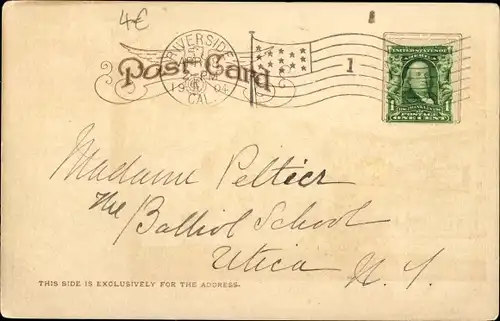 4€
1
RIVERSIDE
APR
1904
CAL.
Post Card
1
UNITED STATES OF AMERICA
1 1
ONE CENT
Madame Peltier
The Balliol School
Utica N. Y.
THIS SIDE IS EXCLUSIVELY FOR THE ADDRESS.